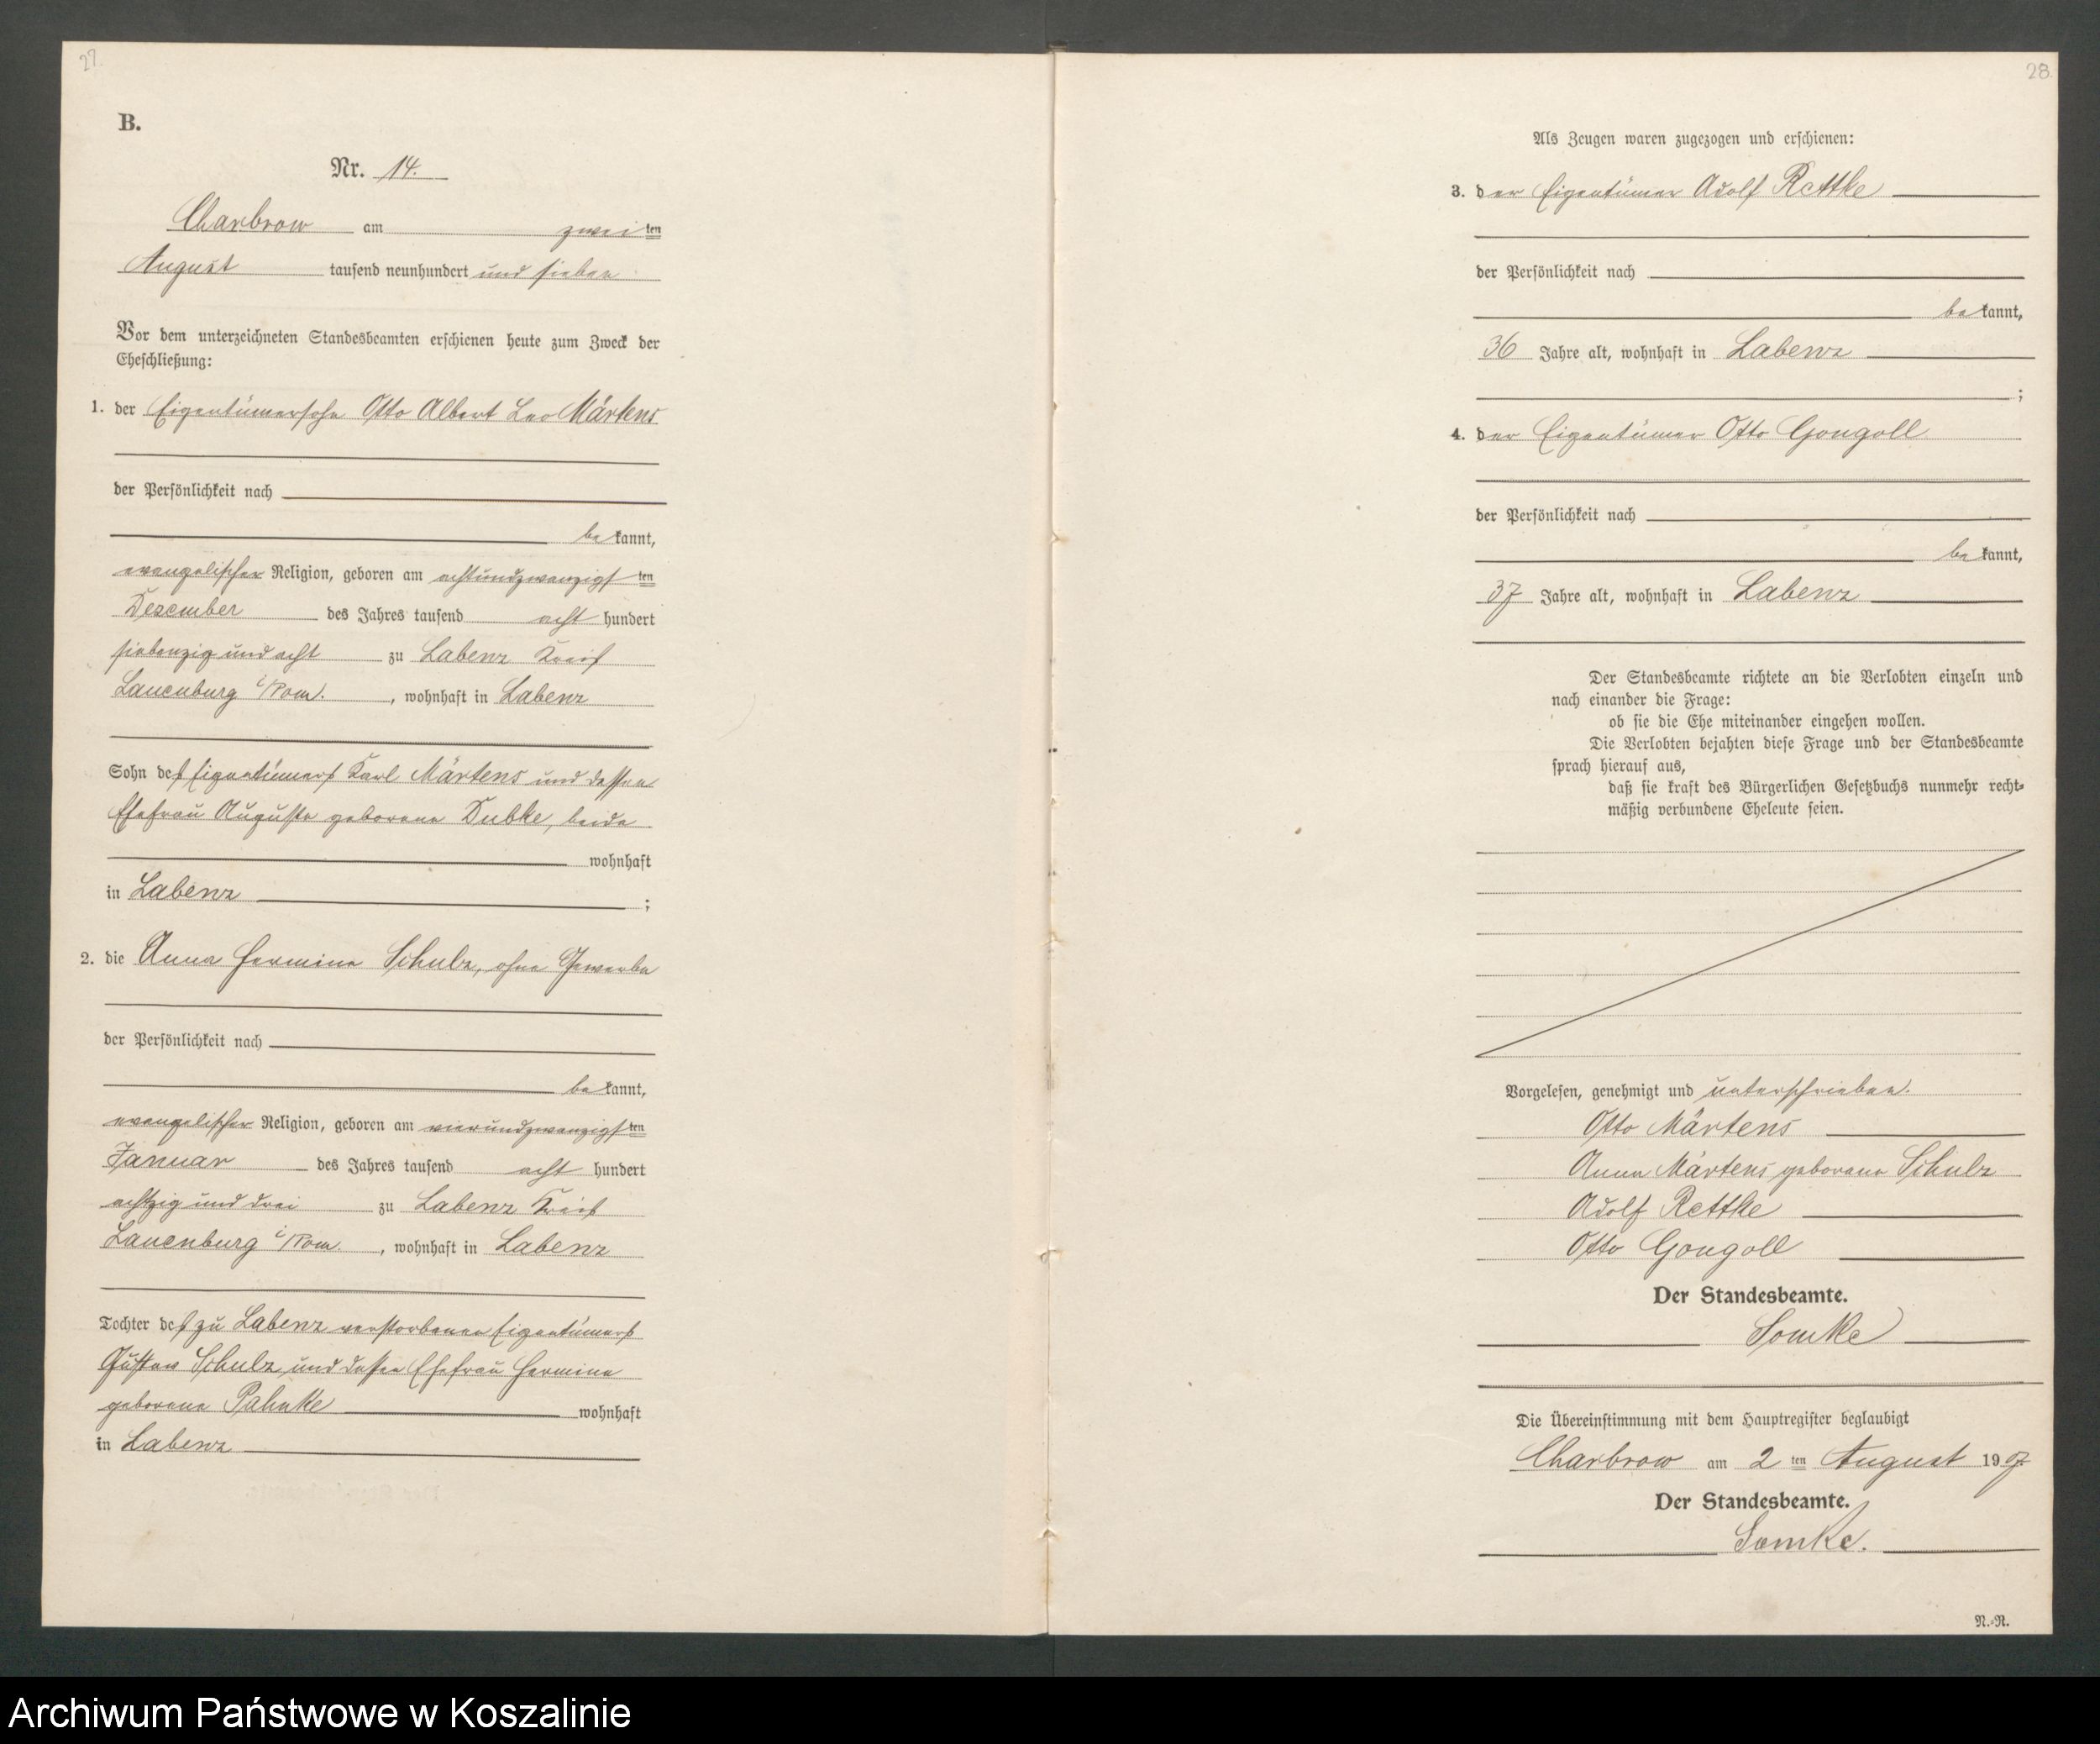 27.
B.
Nr. 14.
Charbrow am zweiten
August tausend neunhundert und sieben
Vor dem unterzeichneten Standesbeamten erschienen heute zum Zweck der
Eheschließung:
1. der Eigentümersohn Otto Albert Leo Märtens
der Persönlichkeit nach
bekannt,
evangelischer Religion, geboren am achtundzwanzigsten
Dezember des Jahres tausend acht hundert
siebenzig und acht zu Labenz Kreis
Lauenburg i/Pom. , wohnhaft in Labenz
Sohn des Eigentümers Karl Märtens und dessen
Ehefrau Auguste geborene Dubke, beide
wohnhaft
in Labenz ;
2. die Anna Hermine Schulz, ohne Gewerbe
der Persönlichkeit nach
bekannt,
evangelischer Religion, geboren am vierundzwanzigsten
Januar des Jahres tausend acht hundert
achtzig und drei zu Labenz Kreis
Lauenburg i/Pom. , wohnhaft in Labenz
Tochter des zu Labenz verstorbenen Eigentümers
Gustav Schulz und dessen Ehefrau Hermine
geborene Pahnke wohnhaft
in Labenz
28.
Als Zeugen waren zugezogen und erschienen:
3. der Eigentümer Adolf Rettke
der Persönlichkeit nach
bekannt,
36 Jahre alt, wohnhaft in Labenz
;
4. der Eigentümer Otto Gongoll
der Persönlichkeit nach
bekannt,
37 Jahre alt, wohnhaft in Labenz
Der Standesbeamte richtete an die Verlobten einzeln und
nach einander die Frage:
ob sie die Ehe miteinander eingehen wollen.
Die Verlobten bejahten diese Frage und der Standesbeamte
sprach hierauf aus,
daß sie kraft des Bürgerlichen Gesetzbuchs nunmehr recht-
mäßig verbundene Eheleute seien.
Vorgelesen, genehmigt und unterschrieben.
Otto Märtens
Anna Märtens geborene Schulz
Adolf Rettke
Otto Gongoll
Der Standesbeamte.
Somke
Die Übereinstimmung mit dem Hauptregister beglaubigt
Charbrow am 2 ten August 1907.
Der Standesbeamte.
Somke.
N.-R.
Archiwum Państwowe w Koszalinie